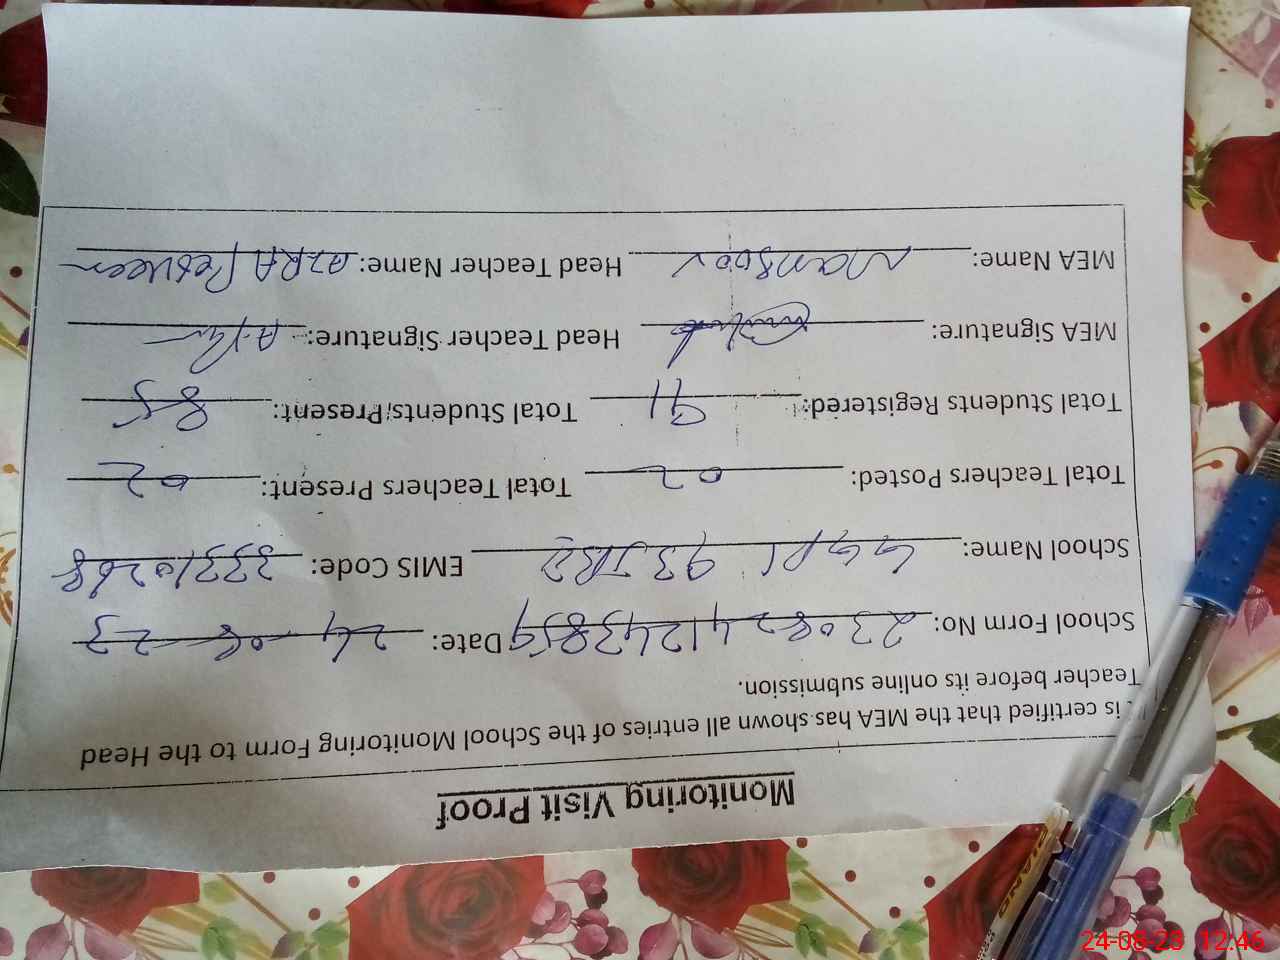 Monitoring Visit Proof
It is certified that the MEA has shown all entries of the School Monitoring Form to the Head
Teacher before its online submission.
School Form No: 2308241243859 Date: 24-08-23
School Name: GGPS 93 JB2 EMIS Code: 33310268
Total Teachers Posted: 02 Total Teachers Present: 02
Total Students Registered: 91 Total Students Present: 85
MEA Signature: Head Teacher Signature:
MEA Name: Mansoor Head Teacher Name: AZRA Perveen
PIANO
24-08-23 12:46